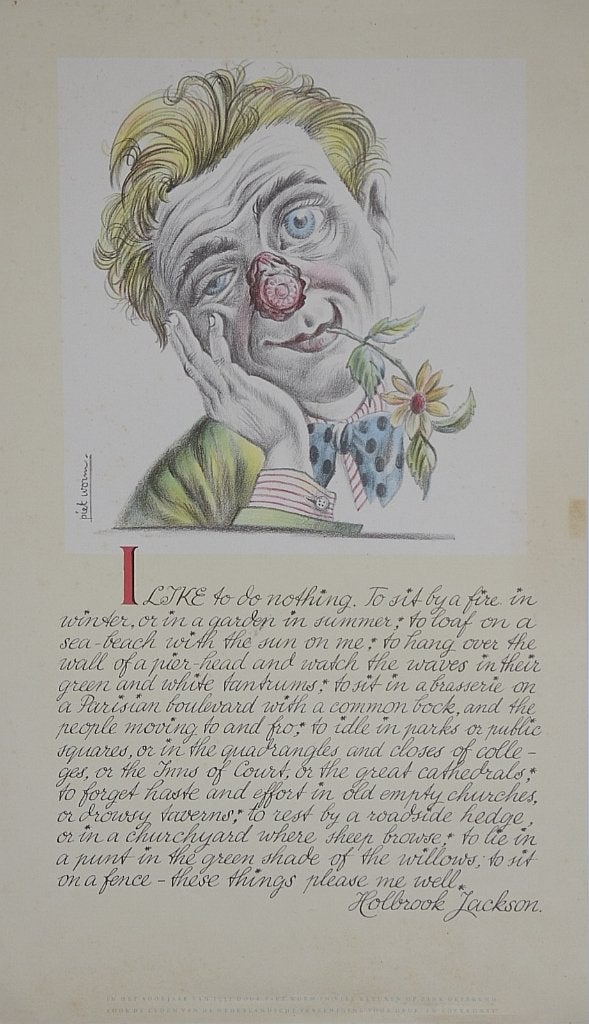 piet worm.
I LIKE to do nothing. To sit by a fire in
winter, or in a garden in summer; to loaf on a
sea-beach with the sun on me; to hang over the
wall of a pier-head and watch the waves in their
green and white tantrums; to sit in a brasserie on
a Parisian boulevard with a common bock, and the
people moving to and fro; to idle in parks or public
squares, or in the quadrangles and closes of colle-
ges, or the Inns of Court, or the great cathedrals;
to forget haste and effort in old empty churches,
or drowsy taverns; to rest by a roadside hedge,
or in a churchyard where sheep browse; to lie in
a punt in the green shade of the willows; to sit
on a fence – these things please me well.
Holbrook Jackson.
IN HET VOORJAAR VAN DOOR PIET WORM IN VIER KLEUREN OP ZINK GETEKEND
VOOR DE LEDEN VAN DE NEDERLANDSCHE VEREENIGING VOOR DRUK- EN BOEKKUNST